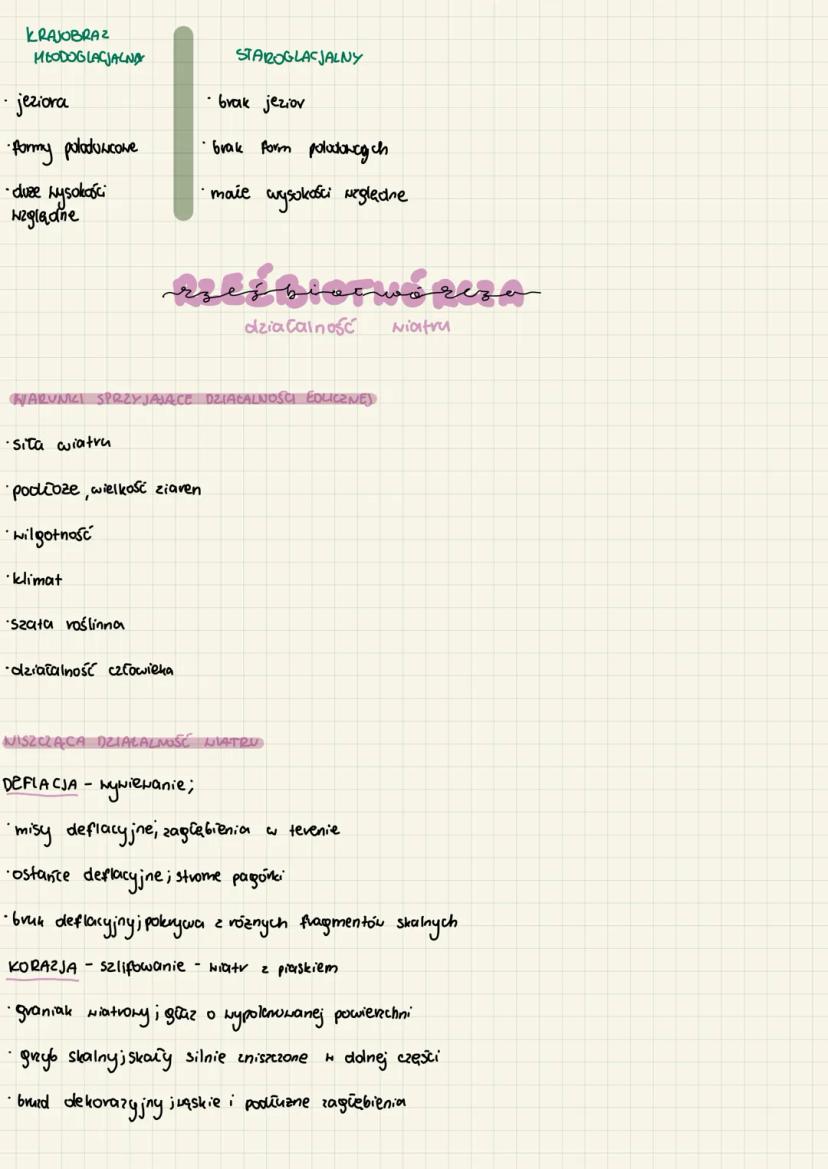 KRAJOBRAZ
MŁODOGLACJALNY
· jeziora
· formy polodowcowe
· duże wysokości
względne
STAROGLACJALNY
· brak jezior
· brak form polodowcowych
· małe wysokości względne
rzeźbiotwórcza
działalność wiatru
WARUNKI SPRZYJAJĄCE DZIAŁALNOŚCI EOLICZNEJ
· siła wiatru
· podłoże, wielkość ziaren
· wilgotność
· klimat
· szata roślinna
· działalność człowieka
NISZCZĄCA DZIAŁALNOŚĆ WIATRU
DEFLACJA - wywiewanie;
· misy deflacyjne; zagłębienia w terenie
· ostańce deflacyjne; strome pagórki
· bruk deflacyjny; pokrywa z różnych fragmentów skalnych
KORAZJA - szlifowanie - wiatr z piaskiem
· graniak wiatrowy; głaz o wypolerowanej powierzchni
· grzyb skalny; skały silnie zniszczone w dolnej części
· bruzd dekorazyjny; wąskie i podłużne zagłębienia